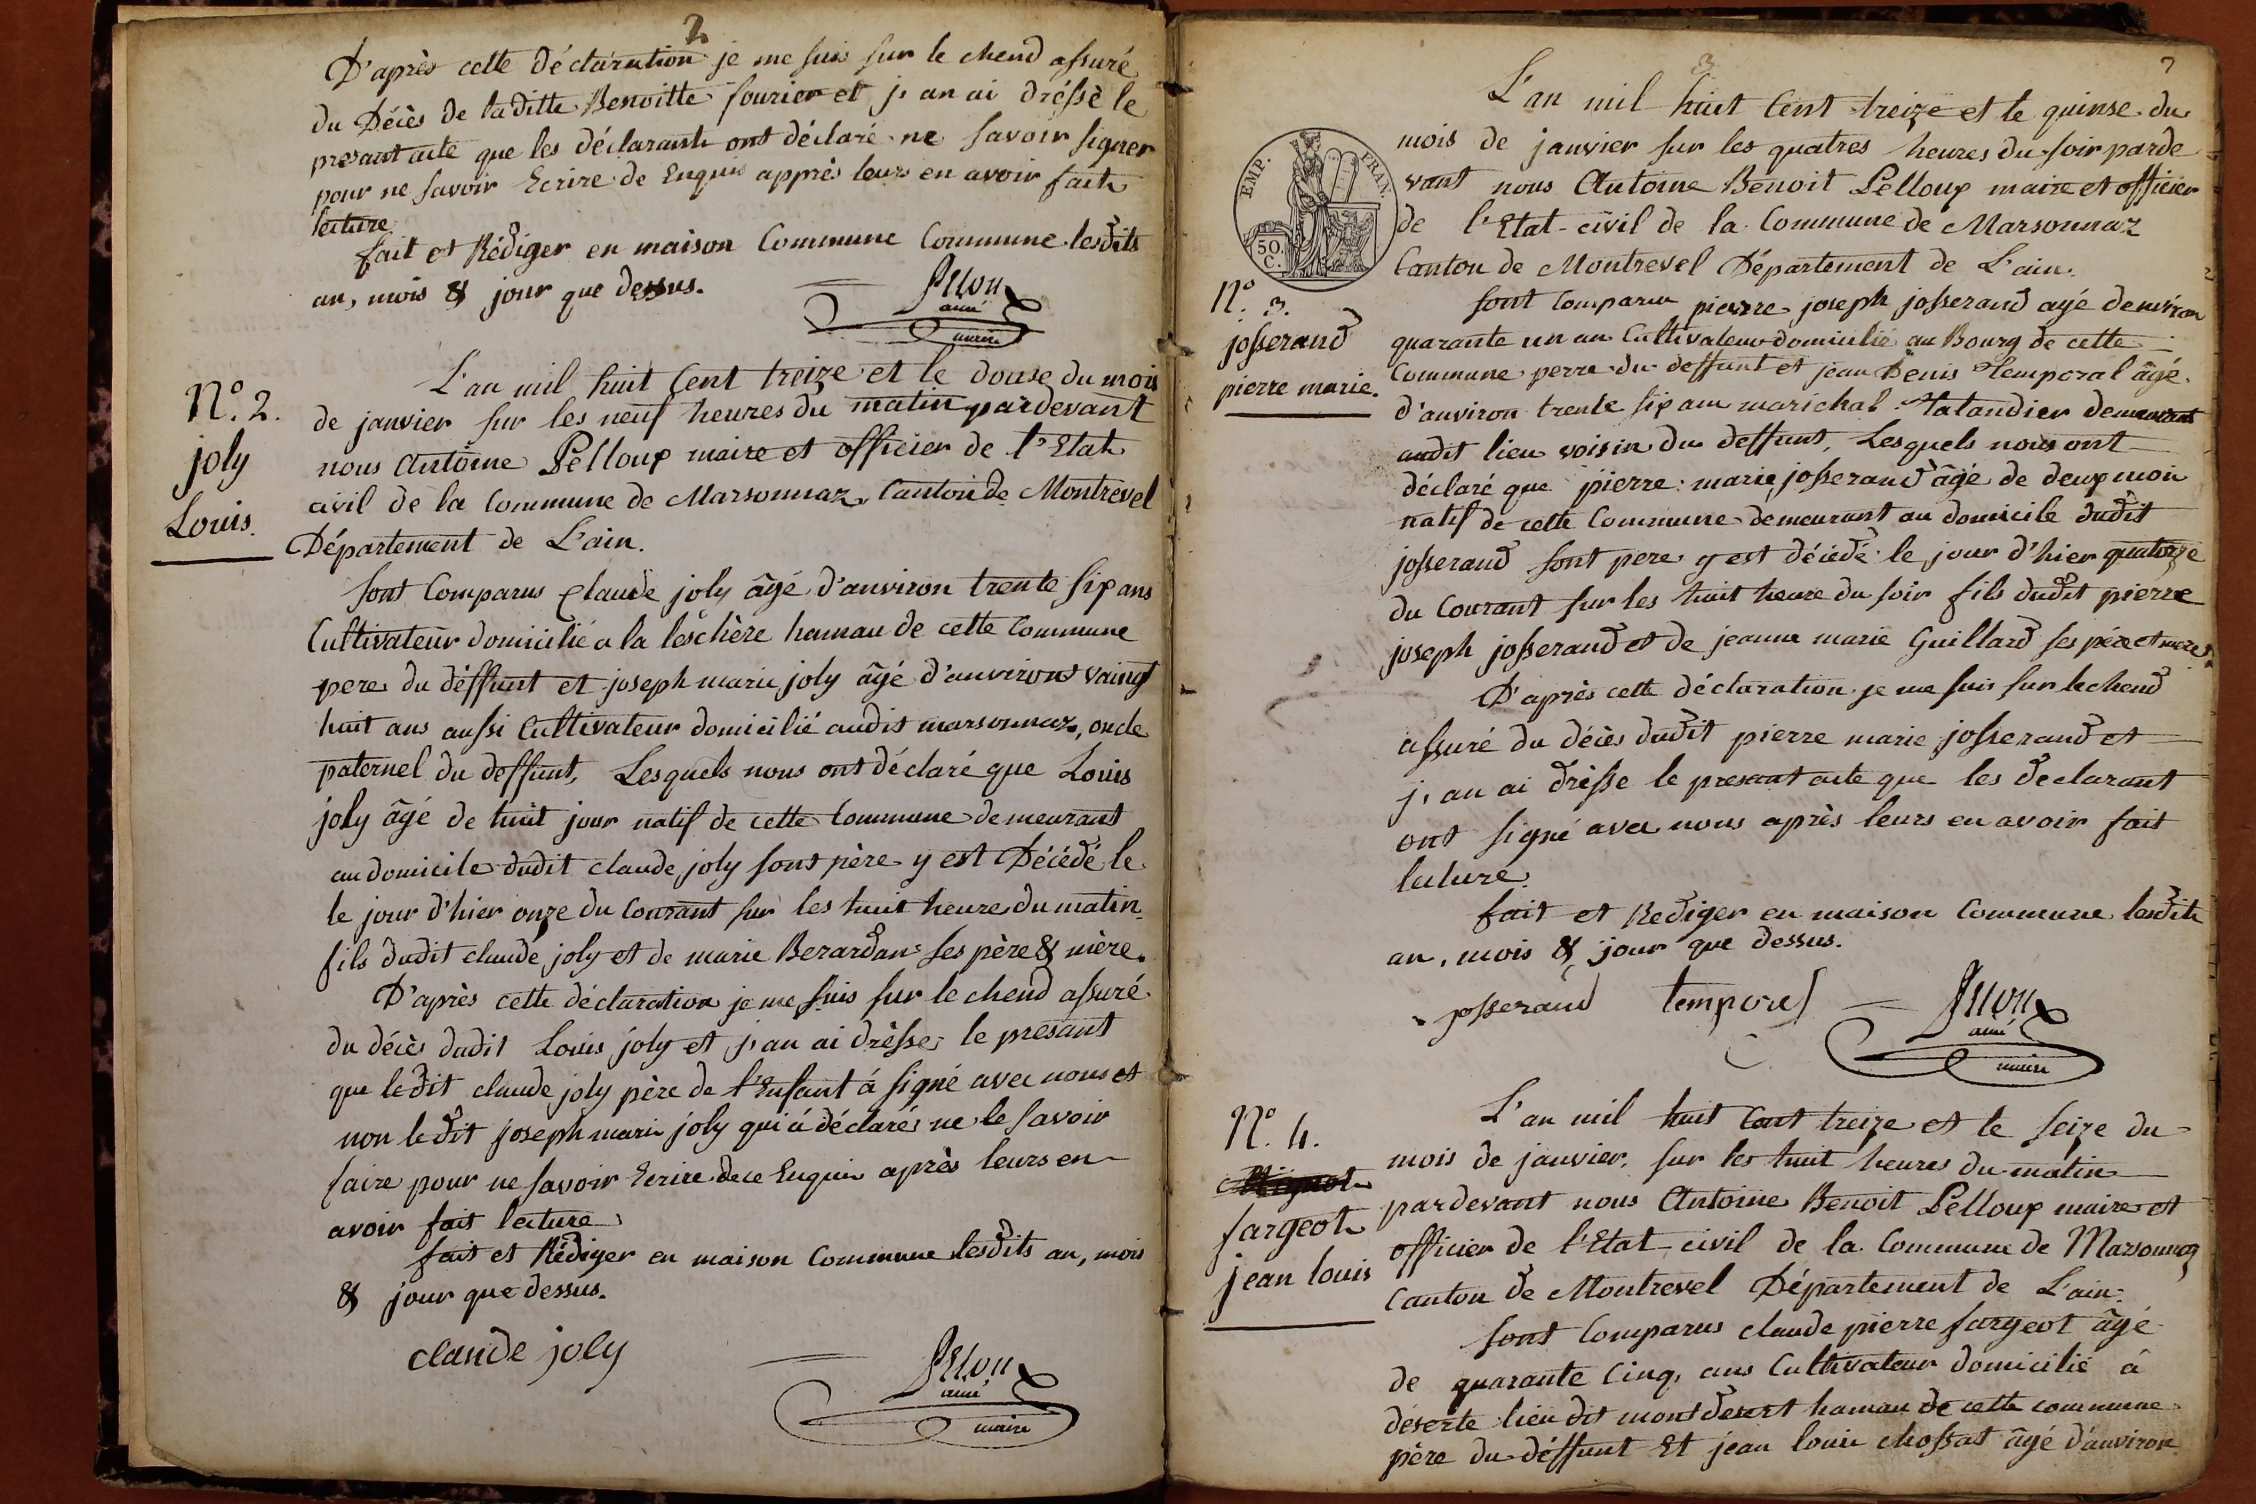 2
D'après cette déclaration je me suis sur le chend assuré
du Décès de laditte Benoitte fourier et j, an ai dréssé le
presant acte que les déclarants ont déclaré ne savoir signer
pour ne savoir Ecrire de Enquis apprès leurs en avoir fait
lecture
fait et Rédiger en maison Commune Commune lesdits
an, mois & jour que dessus.
ainé
maire
N.º 2.
joly
Louis.
L'an mil huit Cent treize et le douse du mois
de janvier sur les neuf heures du matin pardevant
nous Antoine Pelloux maire et officier de l'Etat
civil de la Commune de Marsonnaz, Canton de Montrevel
Département de L'ain.
sont Comparus Claude joly âgé d'anviron trente six ans
Cultivateur domicilié a la leschère hamau de cette Commune
pere du déffunt et joseph marie joly âgé d'anviront vaingt
huit ans aussi Cultivateur domicilié audit marsonnaz, oncle
paternel du deffunt, Lesquels nous ont déclaré que Louis
joly âgé de huit jour natif de cette Commune demeurant
au domicile dudit claude joly sont père y est Décédé le
le jour d'hier onze du Courant sur les huit heure du matin
fils dudit claude joly et de marie Berardan ses père & mère.
D'après cette déclaration je me suis sur le chend assuré
du décès dudit Louis joly et j, an ai drésse le presant
que ledit claude joly père de l'Enfant á signé avec nous et
non ledit joseph marie joly qui á déclaré ne le savoir
faire pour ne savoir Ecrire dece Enquis après leurs en
avoir fait lecture
fait et Rédiger en maison Commune lesdits an, mois
& jour que dessus.
claude joly
ainé
maire
3
EMP. FRAN.
50
C.
L'an mil huit Cent treize et le quinse du
mois de janvier sur les quatres heures du soir parde
vant nous Antoine Benoit Pelloux maire et officier
de l'Etat-civil de la Commune de Marsonnaz
Canton de Montrevel Département de L'ain.
N.º 3.
josserand
pierre marie.
sont Comparu pierre joseph josserand agé denviron
quarante un an Cultivateur domicilié au Bourg de cette
Commune perre du deffunt et jean Denis Temporal âgé
d'anviron trente six ans marichal Talandier demeurant
audit lieu voisin du deffunt, Lesquels nous ont
déclaré que pierre marie josserand âgé de deux mois
natif de cette Commune demeurant au domicile dudit
josserand sont pere y est décédé le jour d'hier quatorze
du Courant sur les huit heure du soir fils dudit pierre
joseph josserand et de jeanne marie Guillard ses père et mere
D'après cette déclaration je me suis sur lechend
assuré du décès dudit pierre marie josserand et
j, an ai drésse le presant acte que les declarant
ont signé avec nous après leurs en avoir fait
lecture.
fait et Rediger en maison Commune lesdits
an, mois & jour que dessus.
josserand temporel
ainé
maire
N.º 4.
fargeot
jean louis
L'an mil huit Cent treize et le seize du
mois de janvier, sur les huit heures du matin
pardevant nous Antoine Benoit Pelloux maire et
officier de l'Etat-civil de la Commune de Marsonnaz
Canton de Montrevel Département de L'ain.
sont Comparus claude pierre fargeot âgé
de quarante Cinq, ans Cultivateur domicilié á
déserte lieu dit mont désert hamau de cette commune
père du déffunt Et jean louis chossat âgé d'anviron